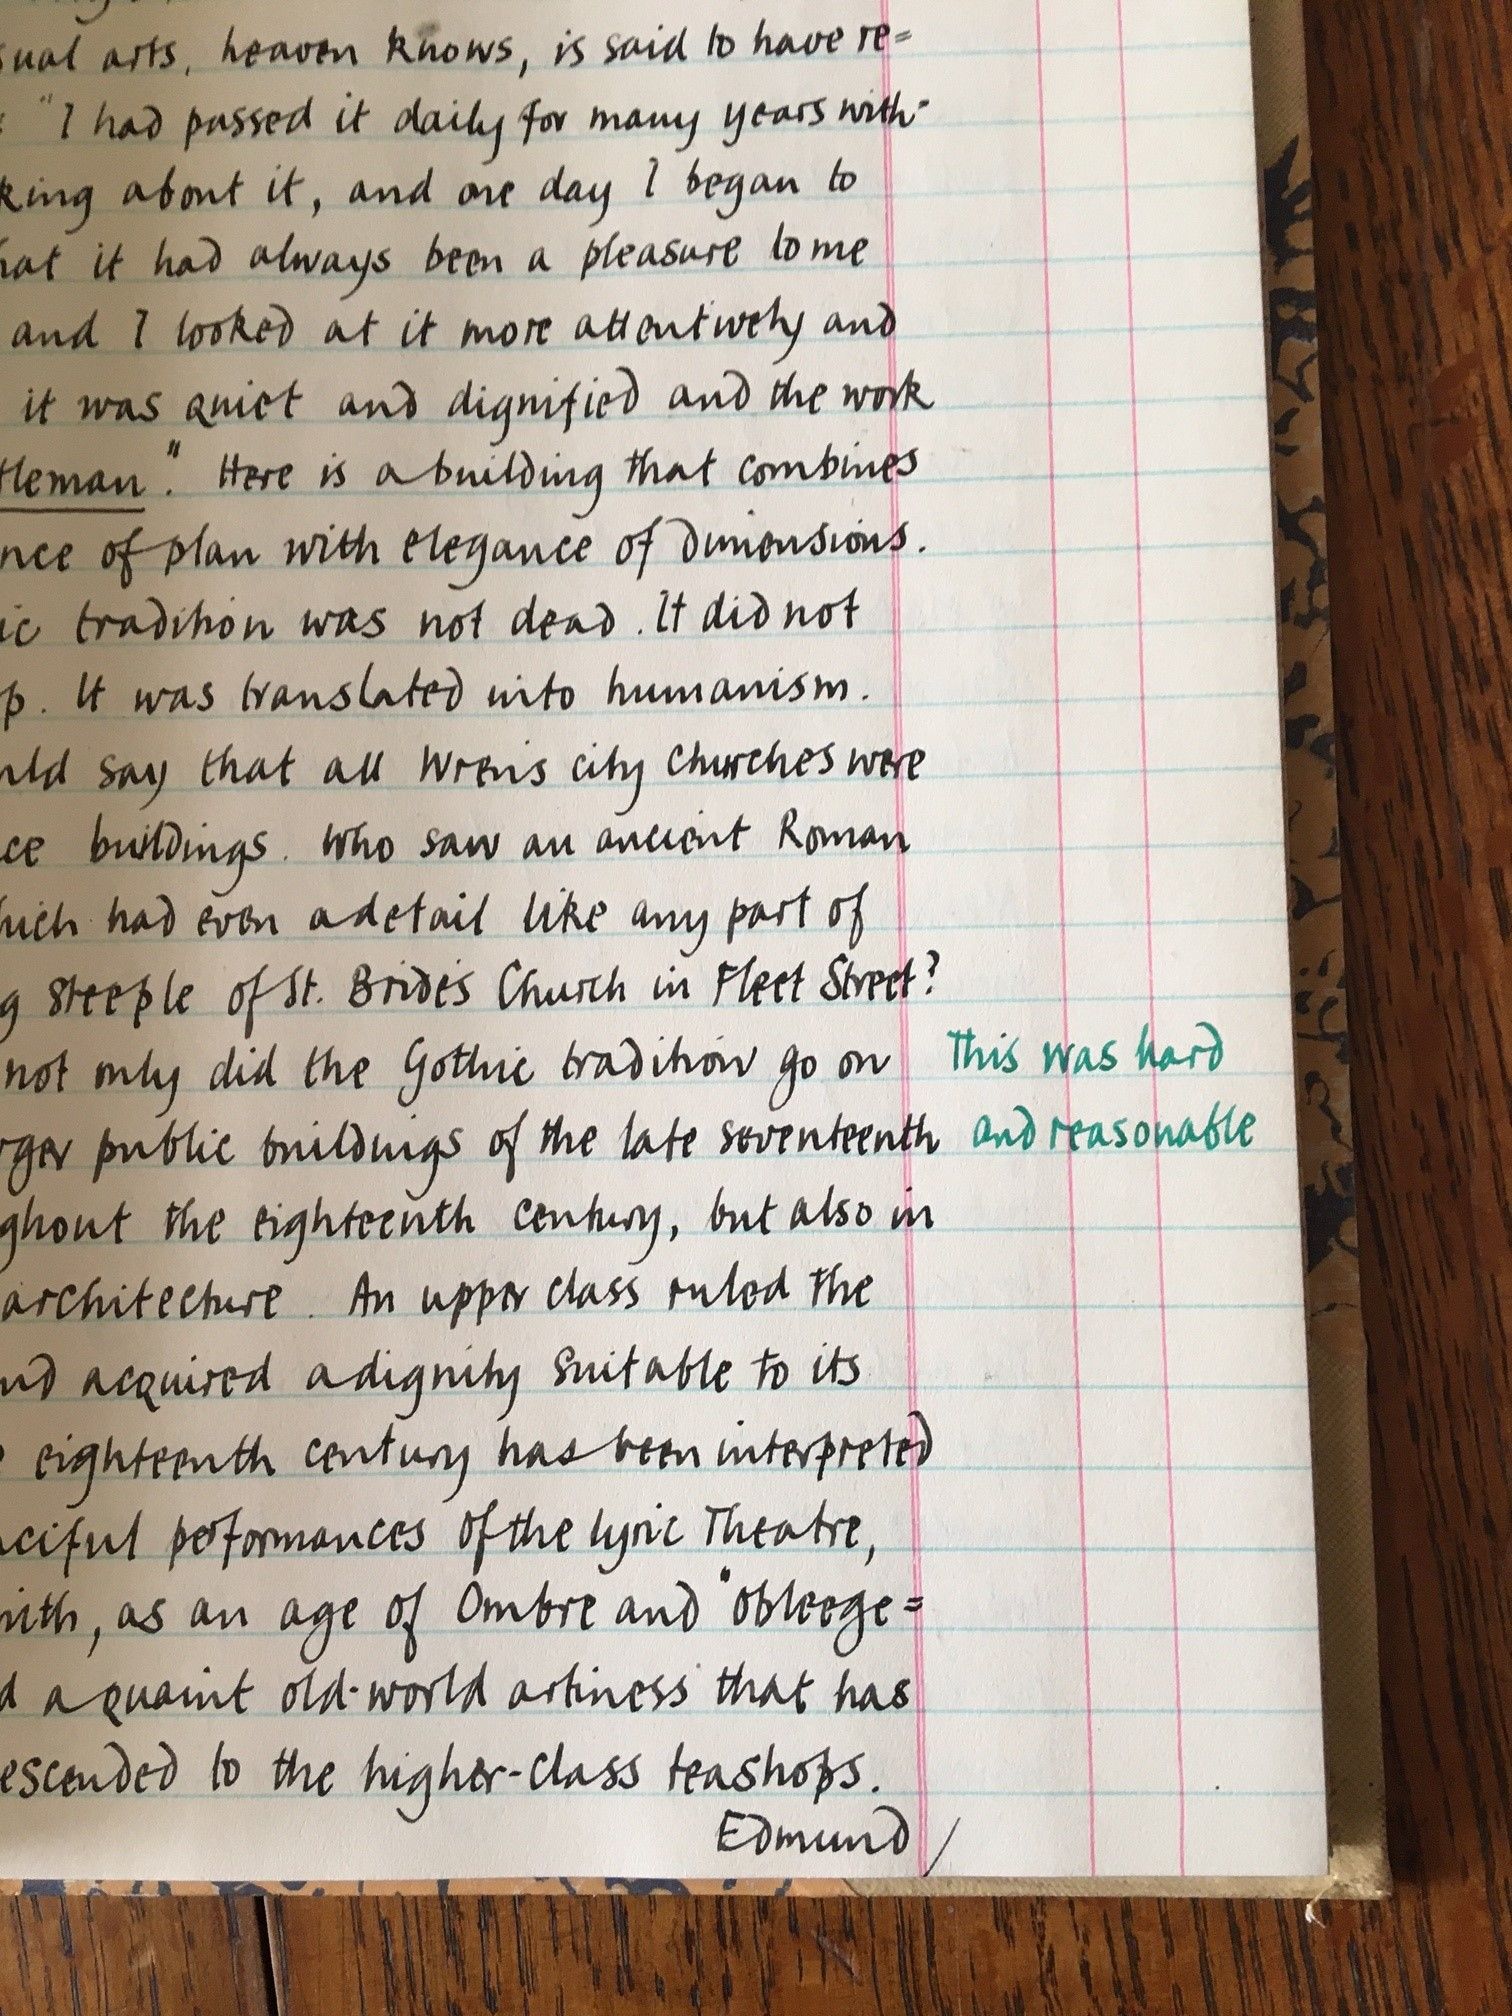 sual arts, heaven knows, is said to have re=
: "I had passed it daily for many years with-
king about it, and one day I began to
hat it had always been a pleasure to me
and I looked at it more attentively and
it was quiet and dignified and the work
tleman". Here is a building that combines
nce of plan with elegance of dimensions.
ic tradition was not dead. It did not
p. It was translated into humanism.
uld say that all Wren's city churches were
ce buildings. Who saw an ancient Roman
hich had even a detail like any part of
g steeple of St. Bride's Church in Fleet Street?
not only did the Gothic tradition go on
rger public buildings of the late seventeenth
ghout the eighteenth century, but also in
architecture. An upper class ruled the
nd acquired a dignity suitable to its
e eighteenth century has been interpreted
nciful performances of the lyric Theatre,
mith, as an age of Ombre and "obleege=
d a quaint old-world artiness that has
escended to the higher-class teashops.
Edmund/
This was hard
and reasonable